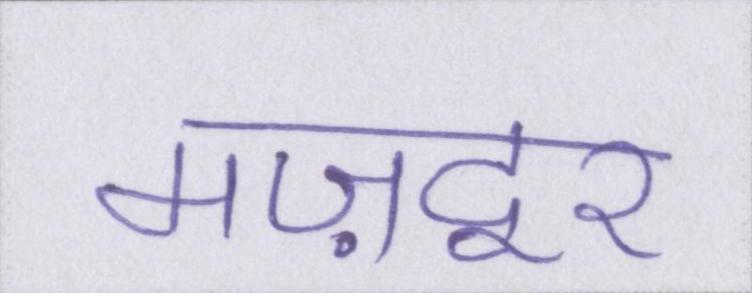 मज़दूर